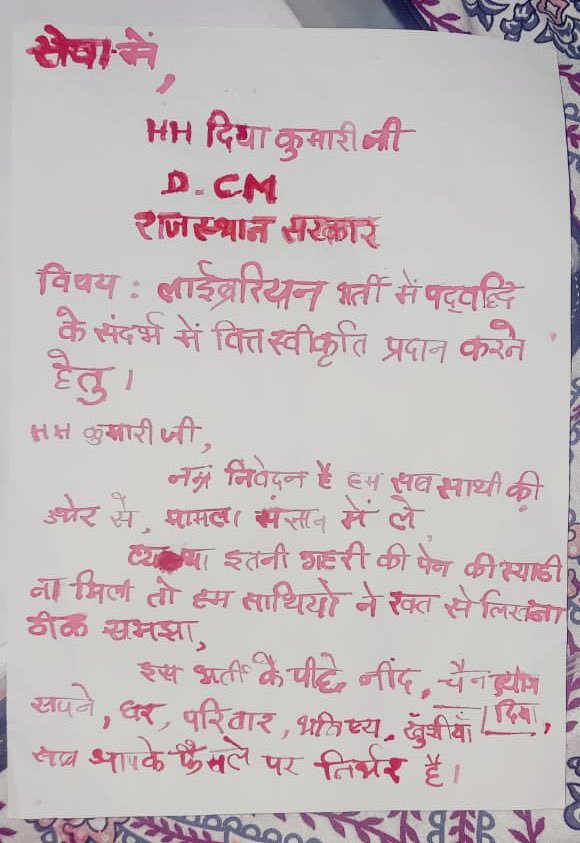 सेवा में,
HH दिया कुमारी जी
D. CM
राजस्थान सरकार
विषय : लाईब्ररियन भर्ती में पदवृद्धि
के संदर्भ में वित्त स्वीकृति प्रदान करने
हेतु ।
HH कुमारी जी,
नम्र निवेदन है हम सब साथी की
ओर से, मामला संज्ञान में ले
इतनी गहरी की पेन की स्याही
ना मिला तो हम साथियो ने रक्त से लिखना
ठीक समझा,
इस भर्ती के पीछे नींद, चैन त्याग
सपने, घर, परिवार, भविष्य, खुँशीयाँ दिया,
सब आपके फैसले पर निर्भर है।